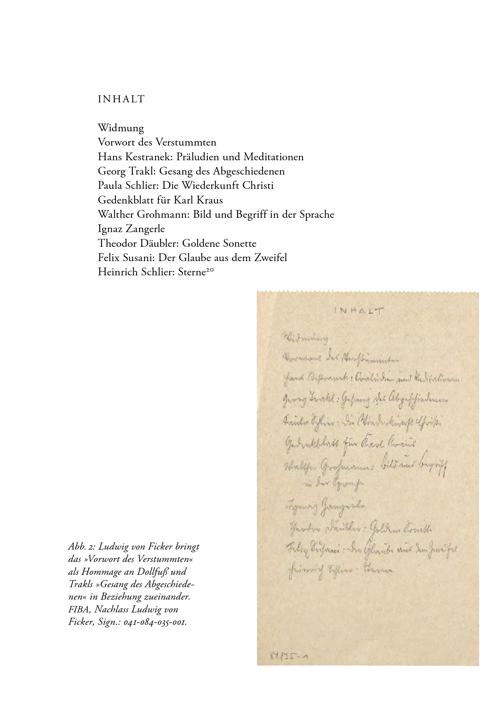 INHALT
Widmung
Vorwort des Verstummten
Hans Kestranek: Präludien und Meditationen
Georg Trakl: Gesang des Abgeschiedenen
Paula Schlier: Die Wiederkunft Christi
Gedenkblatt für Karl Kraus
Walther Grohmann: Bild und Begriff in der Sprache
Ignaz Zangerle
Theodor Däubler: Goldene Sonette
Felix Susani: Der Glaube aus dem Zweifel
Heinrich Schlier: Sterne²⁰
INHALT
Widmung
Vorwort des Verstummten
Hans Kestranek: Präludien und Meditationen
Georg Trakl: Gesang des Abgeschiedenen
Paula Schlier: Die Wiederkunft Christi
Gedenkblatt für Karl Kraus
Walther Grohmann: Bild und Begriff
in der Sprache
Ignaz Zangerle
Theodor Däubler: Goldene Sonette
Felix Susani: Der Glaube aus dem Zweifel
Heinrich Schlier: Sterne
Abb. 2: Ludwig von Ficker bringt
das »Vorwort des Verstummten«
als Hommage an Dollfuß und
Trakls »Gesang des Abgeschiede-
nen« in Beziehung zueinander.
FIBA, Nachlass Ludwig von
Ficker, Sign.: 041-084-035-001.